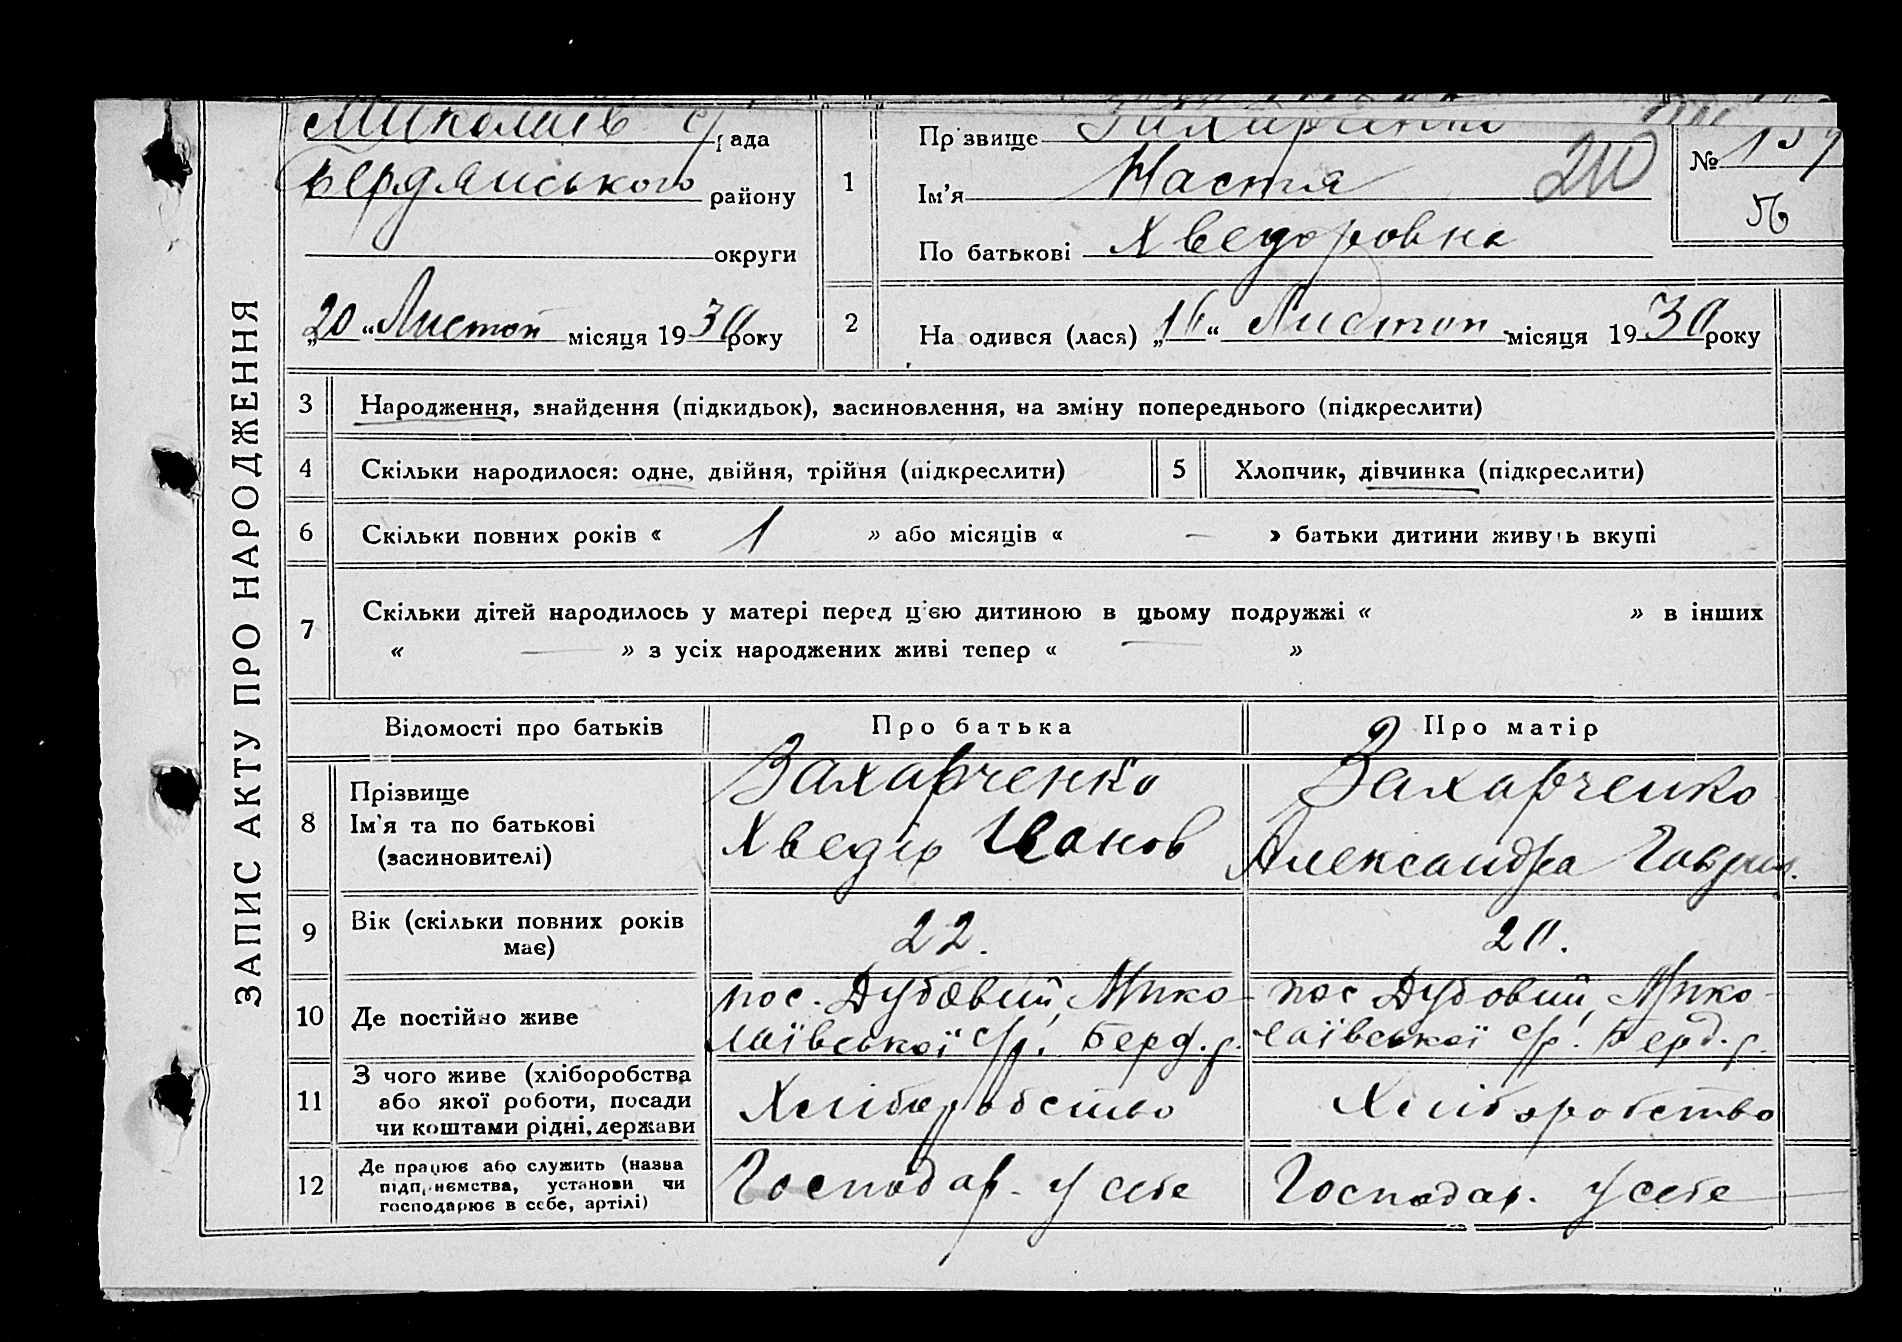 ЗАПИС АКТУ ПРО НАРОДЖЕННЯ
Миколаїв с/рада
Бердянського району
округи
„20“ Листоп місяця 1930 року
1
Прізвище Захарченко
Ім’я Настя
По батькові Хведоровна
210
№
2
На одився (лася) „16“ Листоп. місяця 1930 року
3 Народження, знайдення (підкидьок), засиновлення, на зміну попереднього (підкреслити)
4 Скільки народилося: одне, двійня, трійня (підкреслити)
5 Хлопчик, дівчинка (підкреслити)
6 Скільки повних років « 1 » або місяців « — » батьки дитини живуть вкупі
7 Скільки дітей народилось у матері перед цією дитиною в цьому подружжі « » в інших
« — » з усіх народжених живі тепер « — »
Відомості про батьків Про батька Про матір
8
Прізвище
Ім’я та по батькові
(засиновителі)
Захарченко
Хведір Іванов
Захарченко
Александра Гаврил.
9
Вік (скільки повних років
має)
22.
20.
10 Де постійно живе
пос. Дубовий, Мико-
лаївської с/р. Берд. р.
пос Дубовий, Мико-
лаївської с/р. Берд. р.
11
З чого живе (хліборобства
або якої роботи, посади
чи коштами рідні, держави
Хліборобство
Хліборобство
12
Де працює або служить (назва
підприємства, установи чи
господарює в себе, артілі)
Господар. у себе
Господар. у себе